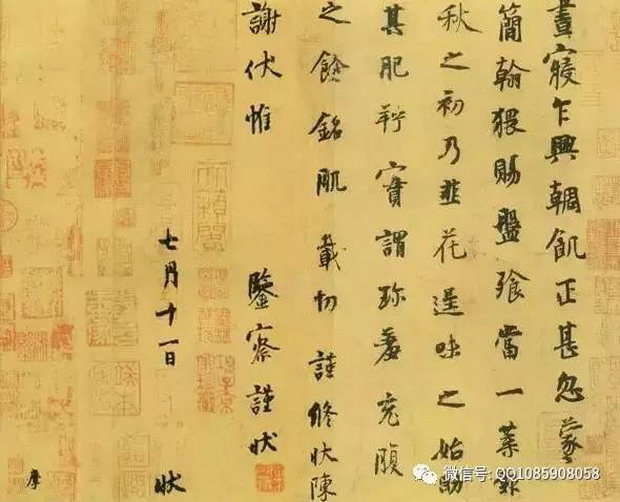 晝寢乍興輖飢正甚忽蒙
簡翰猥賜盤飧當一葉報
秋之初乃韭花逞味之始助
其肥羜實謂珍羞充腹
之餘銘肌載切謹修狀陳
謝伏惟 鑒察謹狀
七月十一日 狀
微信号: QQ1085908058